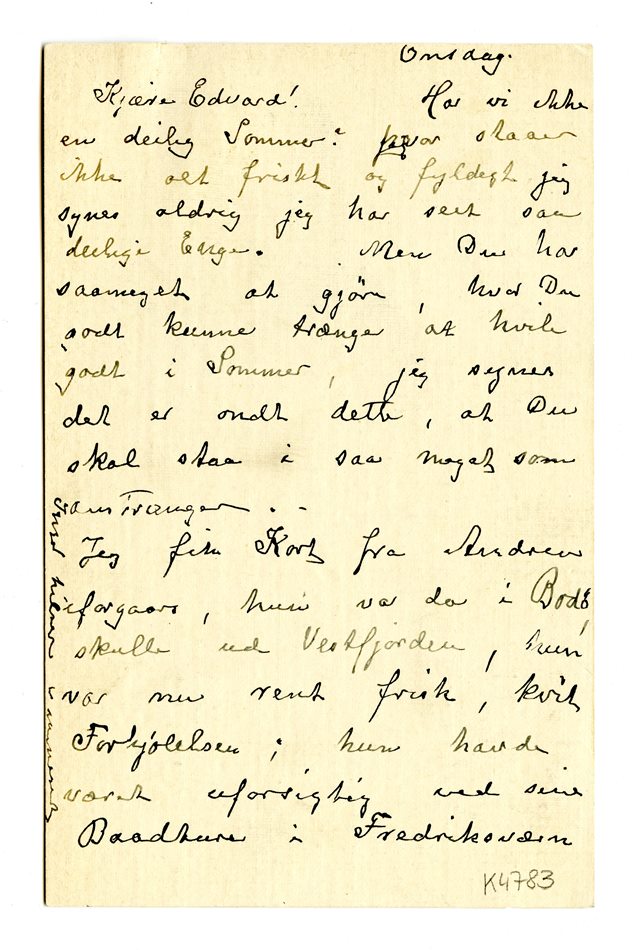 Onsdag.
Kjære Edvard! Har vi ikke
en deilig Sommer? hvor staaer
ikke alt friskt og fyldigt jeg
synes aldrig jeg har seet saa
deilige Enge. Men Du har
saameget at gjøre, hvor Du
godt kunne trænge at hvile
godt i Sommer, jeg synes
det er ondt dette, at Du
skal staa i saa meget som
anstrænger. . -
Jeg fik Kort fra Andrea
iforgaars, hun var da i Bodø,
skulle ud Vestfjorden, hun
var nu rent frisk, kvit
Forkjølelsen; hun havde
været uforsigtig ved sine
Baadture i Fredriksværn
Inger hilser
K4783